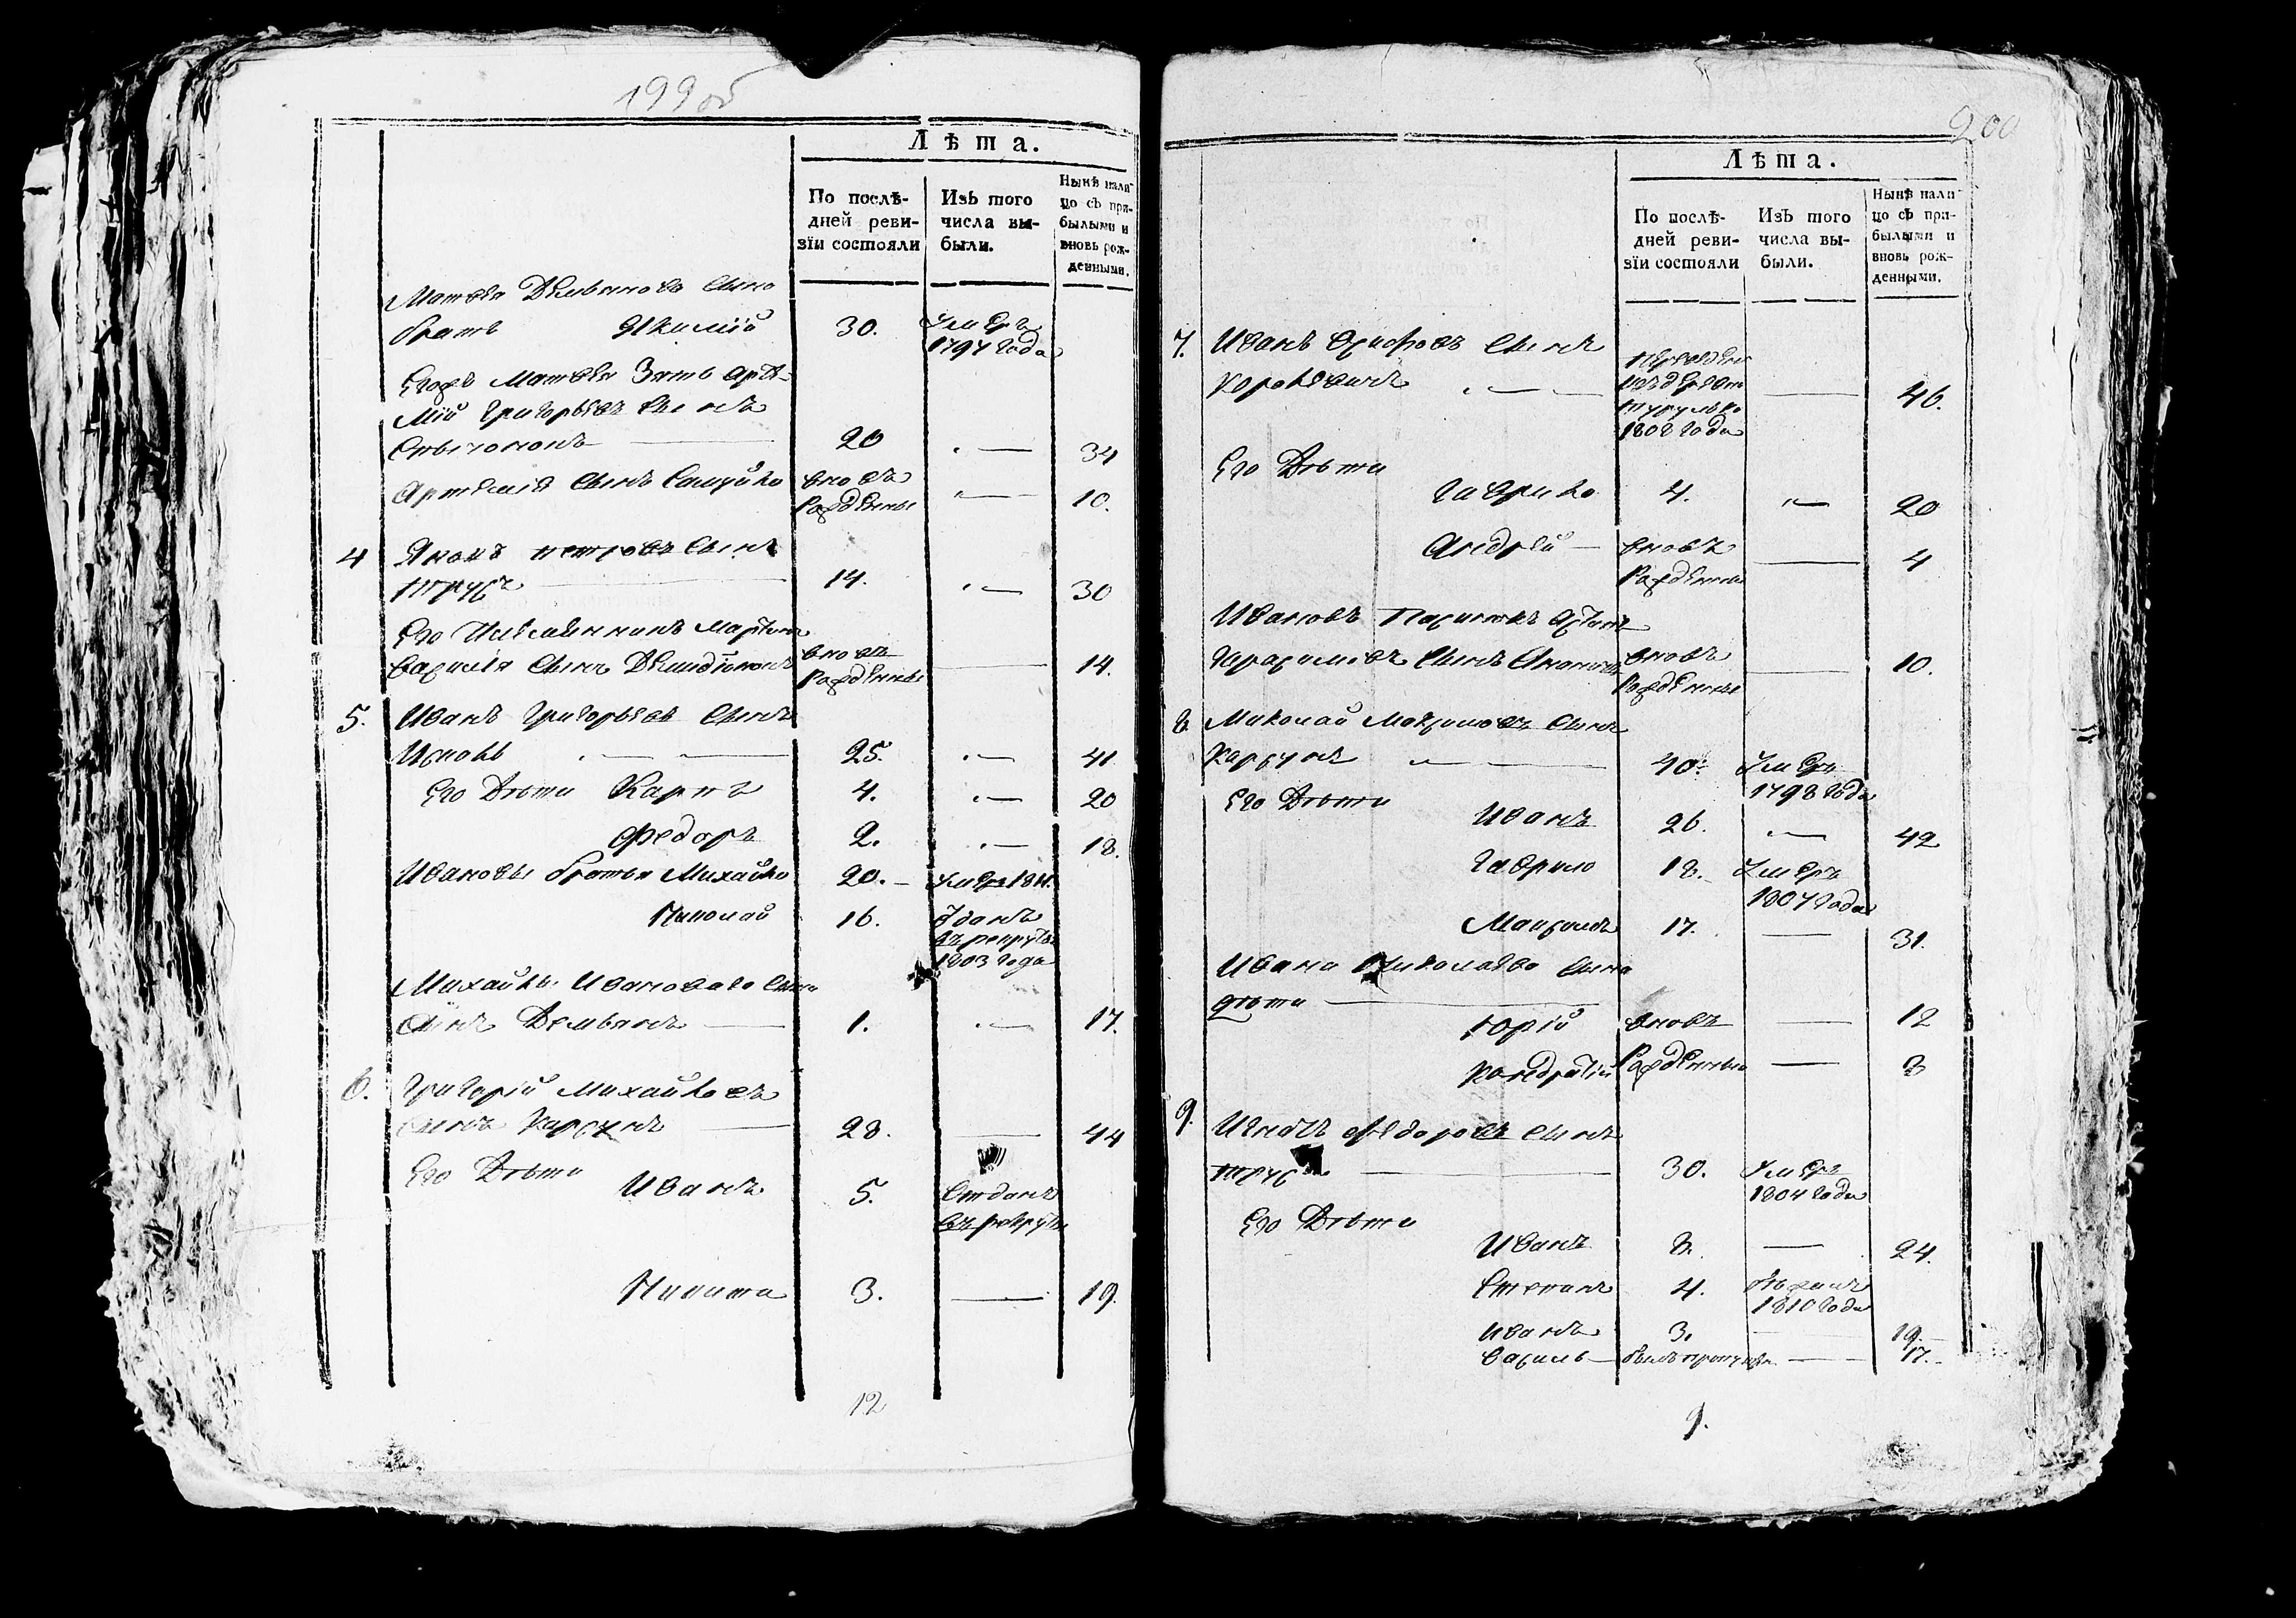 199 об
Лѣта.
По послѣ-
дней реви-
зіи состояли
Изъ того
числа вы-
были.
Нынѣ нали-
цо съ при-
былыми и
вновь рож-
денными.
Матвея Демьянова сына
братъ Якимій 30. умеръ
1797 года
Егожъ Матвея Зять Арте-
мій Григорьевъ сынъ
20 — 34
Артемія сынъ вновь
рожденные — 10.
4 петровъ сынъ
Трусъ 14. — 30
Его племянникъ Мартинъ
Василія сынъ вновь
рожденные — 14.
5. Иванъ Григорьевъ сынъ
25. — 41
Его Дѣти Карпъ 4. — 20
Федоръ 2. — 18.
Ивановы братья Михайло 20. — умеръ 1811.
Николай 16. Зданъ
въ рекруты
1803 года
Михайлы Иванова сына
сынъ Демьянъ — 1. — 17.
6. Григорій Михайловъ
сынъ Карсунъ — 28. — 44
Его Дѣти Иванъ 5. Отданъ
въ рекруты
Никита 3. — 19.
12
200
Лѣта.
По послѣ-
дней реви-
зіи состояли
Изъ того
числа вы-
были.
Нынѣ нали-
цо съ при-
былыми и
вновь рож-
денными.
7. Иванъ Осиповъ сынъ
переведенъ
изъ деревни
— 46.
1808 года
Его Дѣти
Гаврило 4. — 20
Андрей — вновь
рожденные — 4
Ивановъ
Герасимовъ сынъ вновь
рожденные — 10.
8. Николай Максимовъ сынъ
Карсунъ — 40. умеръ
1798 года
Его Дѣти
Иванъ 26. — 42
Гаврило 18. умеръ
1807 года
Максимъ 17. — 31.
Ивана Николаева сына
дѣти —
Юрій вновь — 12
Кондратій рожденные — 8
9. Игнатъ Федоровъ сынъ
Трусъ — 30. умеръ
1804 года
Его Дѣти
Иванъ 8. — 24.
Степанъ 4. въ бѣгахъ
1810 года
Иванъ 3. — 19.
Василь — былъ пропущен — 17.
9.